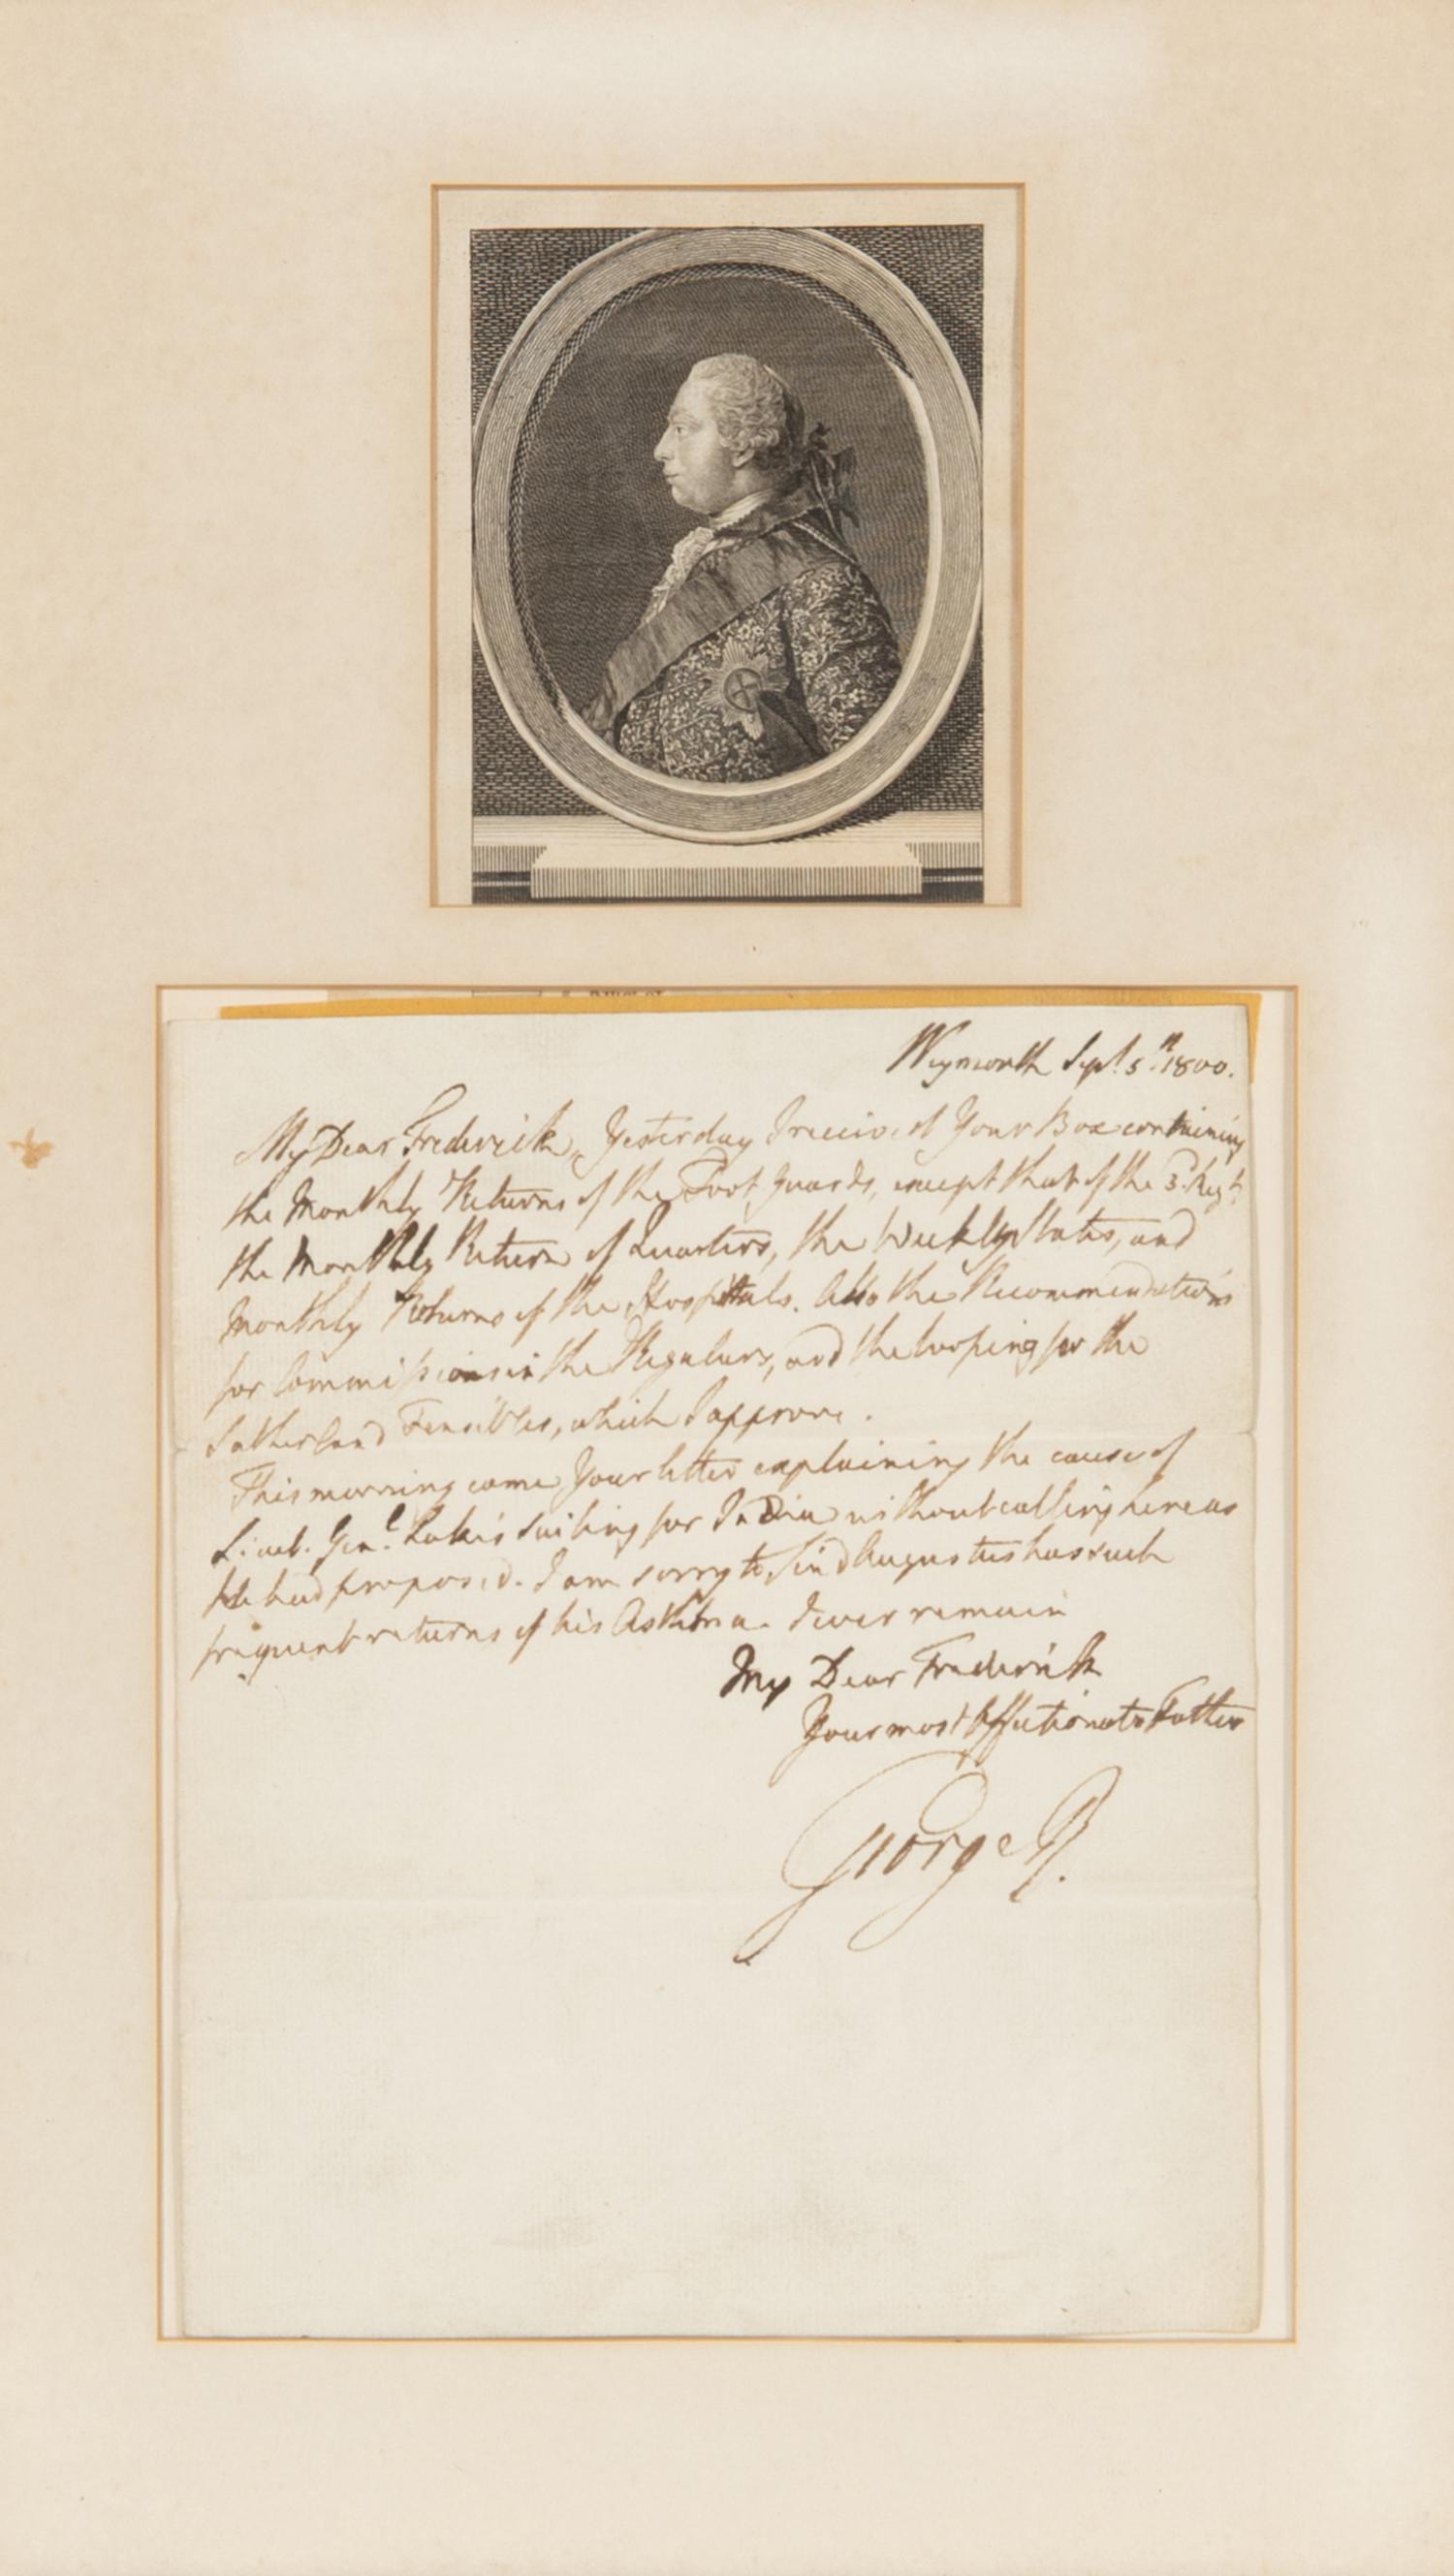 Weymouth Septr. 5th 1800.
My Dear Frederick, Yesterday I received Your Box containing
the Monthly Returns of the Foot Guards, except that of the 3d. Regt.
the Monthly Return of Quarters, the Weekly States, and
Monthly Returns of the Hospitals. Also the Recommendations
for Commissions in the Regulars, and the for the
Sutherland Fensibles, which I approve.
This morning came Your letter explaining the cause of
Lieut. Genl. Lake's sailing for India without calling here as
He had proposed. I am sorry to find Augustus has such
frequent returns of his Asthma. I ever remain
My Dear Frederick
Your most Affectionate Father
George R.